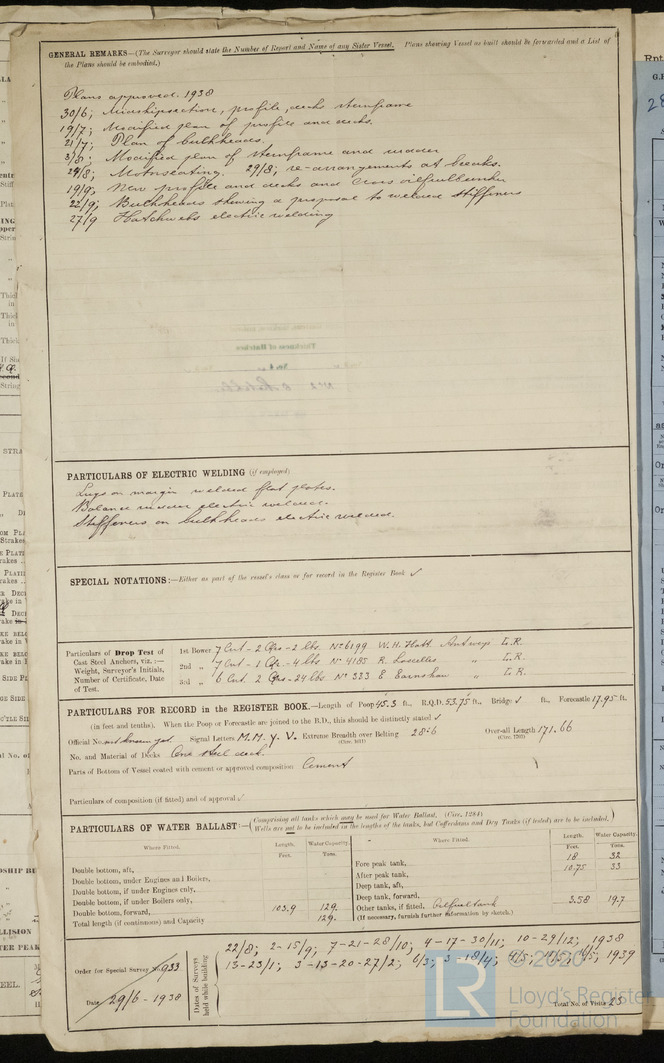 GENERAL REMARKS—(The Surveyor should state the Number of Report and Name of any Sister Vessel. Plans showing Vessel as built should be forwarded and a List of
the Plans should be embodied.)
Plans approved 1938
30/6; Midshipsection, profile, decks sternframe
19/7; Modified plan of profile and decks.
21/7; Plan of bulkheads.
3/8; Modified plan of sternframe and rudder
24/8; Motorseating. 29/8; re-arrangements at peaks.
19/9; New profile and decks and cross oilfuelbunker
22/9; Bulkheads showing a proposal to welded stiffeners
27/9 Hatchwebs electric welding
PARTICULARS OF ELECTRIC WELDING (if employed)
Lugs on margin welded flat plates.
Balance rudder electric welded.
Stiffeners on bulkheads electric welded.
SPECIAL NOTATIONS:—Either as part of the vessel's class or for record in the Register Book ✓
Particulars of Drop Test of
Cast Steel Anchors, viz.:—
Weight, Surveyor's Initials,
Number of Certificate, Date
of Test.
1st Bower 7 Cwt - 2 Qrs - 2 lbs. No 6199 W.H. Antwerp L.R.
2nd „ 7 Cwt - 1 Qr - 4 lbs No 4185 R. Lascelles „ L.R.
3rd „ 6 Cwt. 2 Qrs - 24 lbs No 333 E Earnshaw „ L.R.
PARTICULARS FOR RECORD in the REGISTER BOOK.—Length of Poop 45.3 ft., R.Q.D. 53.75 ft., Bridge ✓ ft., Forecastle 17.95 ft.
(in feet and tenths). When the Poop or Forecastle are joined to the B.D., this should be distinctly stated ✓
Official No. not known yet Signal Letters M.M. Y. V. Extreme Breadth over Belting 28-6 Over-all Length 171.66
(Circ. 1611) (Circ. 1703)
No. and Material of Decks One steel deck.
Parts of Bottom of Vessel coated with cement or approved composition Cement
Particulars of composition (if fitted) and of approval ✓
PARTICULARS OF WATER BALLAST:—(Comprising all tanks which may be used for Water Ballast. (Circ. 1284)
Wells are not to be included in the lengths of the tanks, but Cofferdams and Dry Tanks (if tested) are to be included.)
Where Fitted. Length. Water Capacity. Where Fitted. Length. Water Capacity.
Feet. Tons. Feet. Tons.
Double bottom, aft, Fore peak tank, 18 32
Double bottom, under Engines and Boilers, After peak tank, 10.75 33
Double bottom, if under Engines only, Deep tank, aft,
Double bottom, if under Boilers only, Deep tank, forward,
Double bottom, forward, 103.9 129. Other tanks, if fitted, Oilfueltank 3.58 19.7
Total length (if continuous) and Capacity 129. (If necessary, furnish further information by sketch.)
Order for Special Survey No 933
Date 29/6 - 1938
Dates of Surveys held while building
22/8; 2-15/9; 7-21-28/10; 4-17-30/11; 10-29/12; 1938
13-23/1; 3-13-20-27/2; 6/3; 3-18/4; 1939
Total No. of Visits 23
© 2020
Lloyd's Register
Foundation
LR